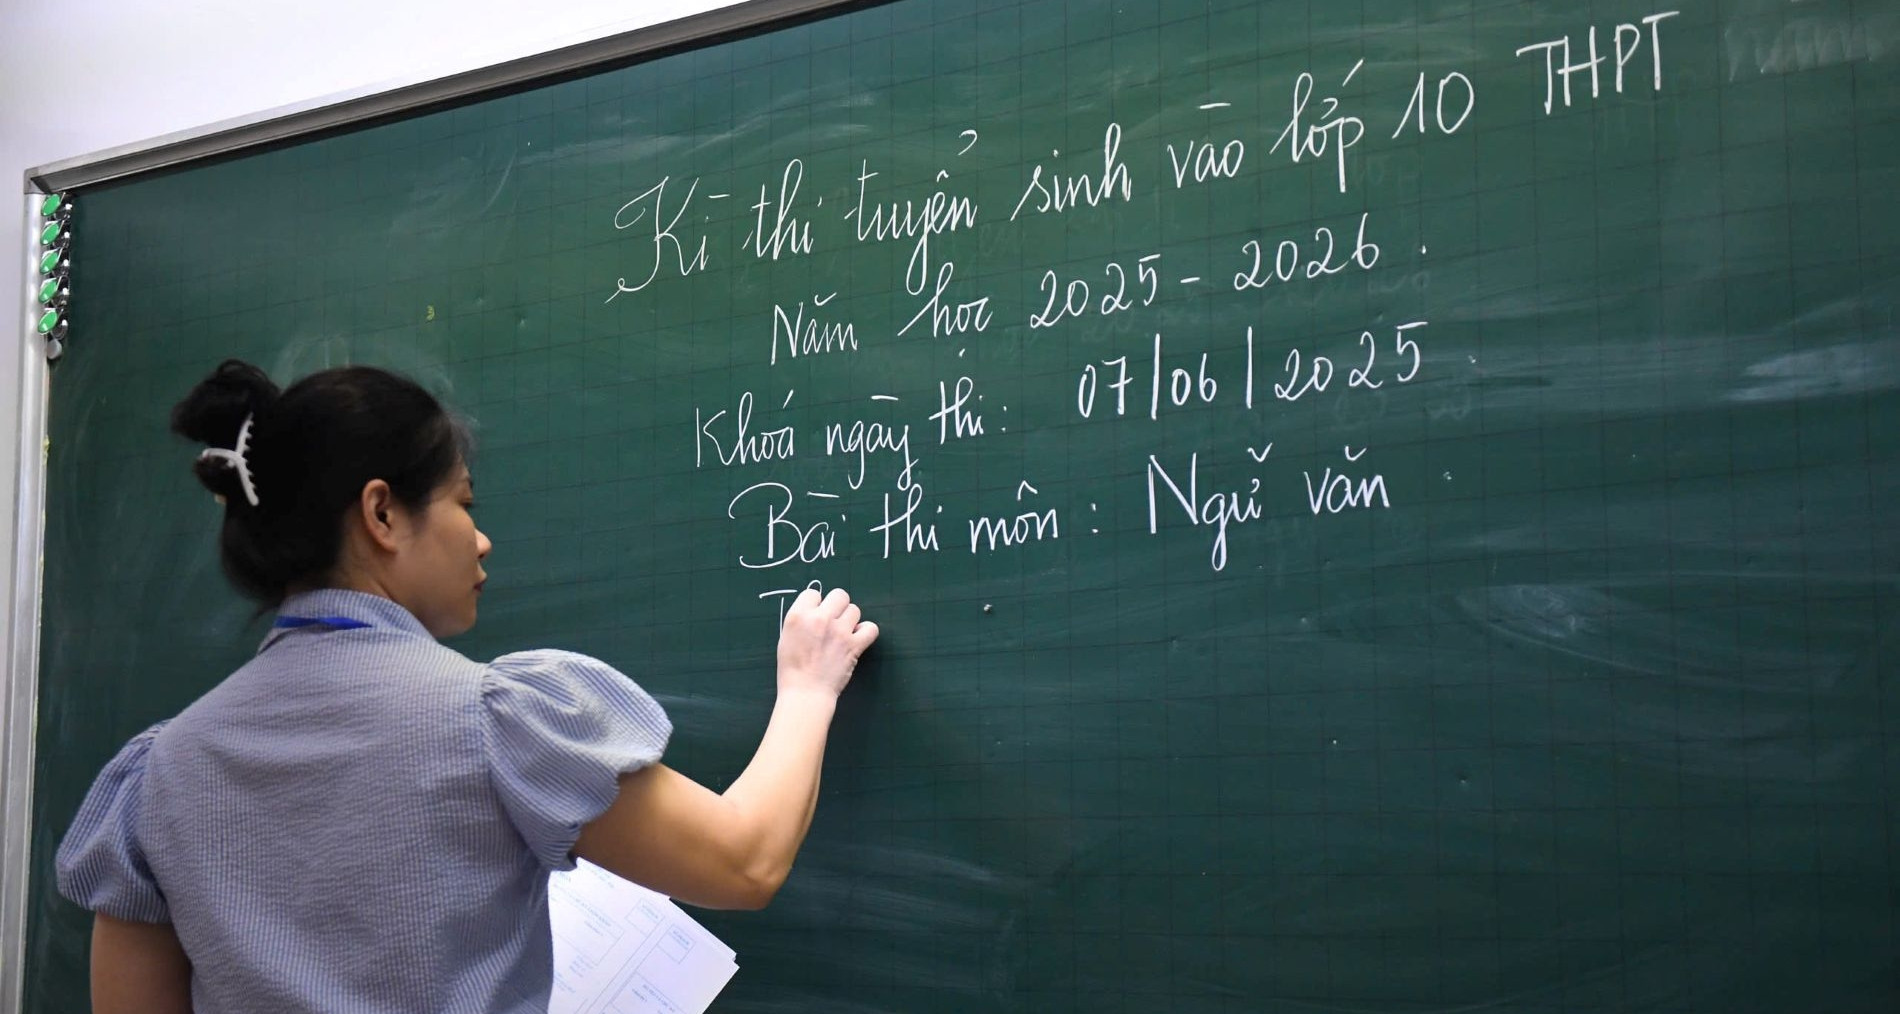 Kì thi tuyển sinh vào lớp 10 THPT
Năm học 2025 - 2026.
Khoá ngày thi: 07/06/2025
Bài thi môn: Ngữ văn
T